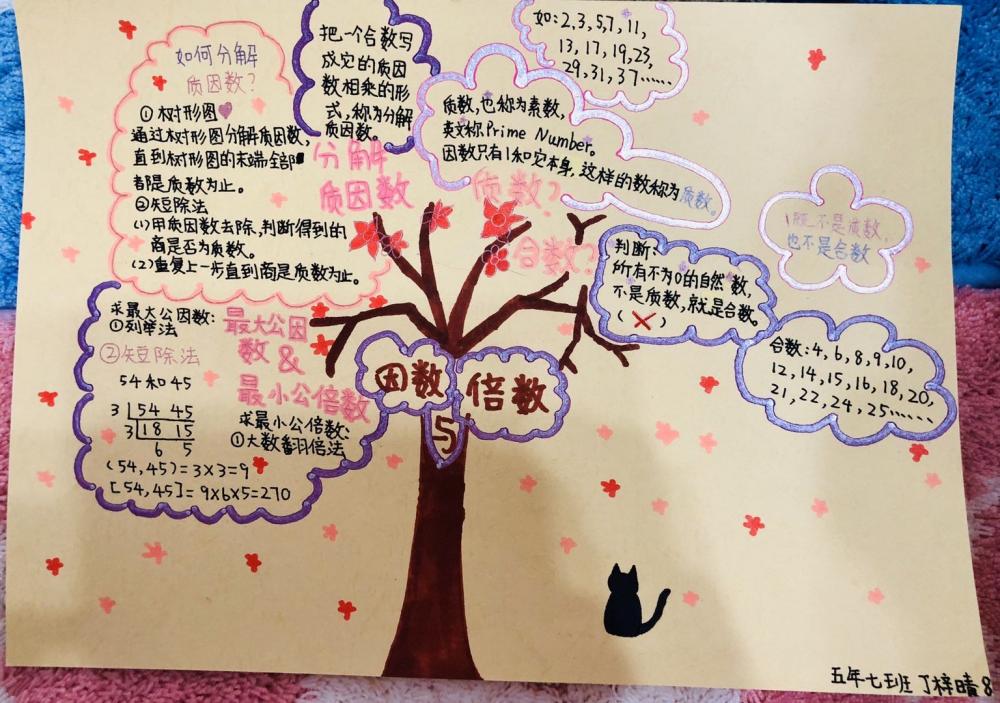 如何分解
质因数？
①树形图
通过树形图分解质因数，
直到树形图的末端全部
都是质数为止。
②短除法
(1)用质因数去除，判断得到的
商是否为质数。
(2)重复上一步直到商是质数为止。
把一个合数写
成它的质因
数相乘的形
式，称为分解
质因数。
分解
质因数
如：2,3,5,7,11,
13,17,19,23,
29,31,37……
质数，也称为素数，
英文称Prime Number。
因数只有1和它本身，这样的数称为质数。
质数？
合数？
1既不是质数，
也不是合数
判断：
所有不为0的自然数，
不是质数，就是合数。
(×)
合数：4,6,8,9,10,
12,14,15,16,18,20,
21,22,24,25……
求最大公因数：
①列举法
②短除法
54和45
3 54 45
3 18 15
6 5
(54,45)=3×3=9
[54,45]=9×6×5=270
最大公因
数&
最小公倍数
求最小公倍数：
①大数翻倍法
因数
与
倍数
五年七班 丁梓晴 8